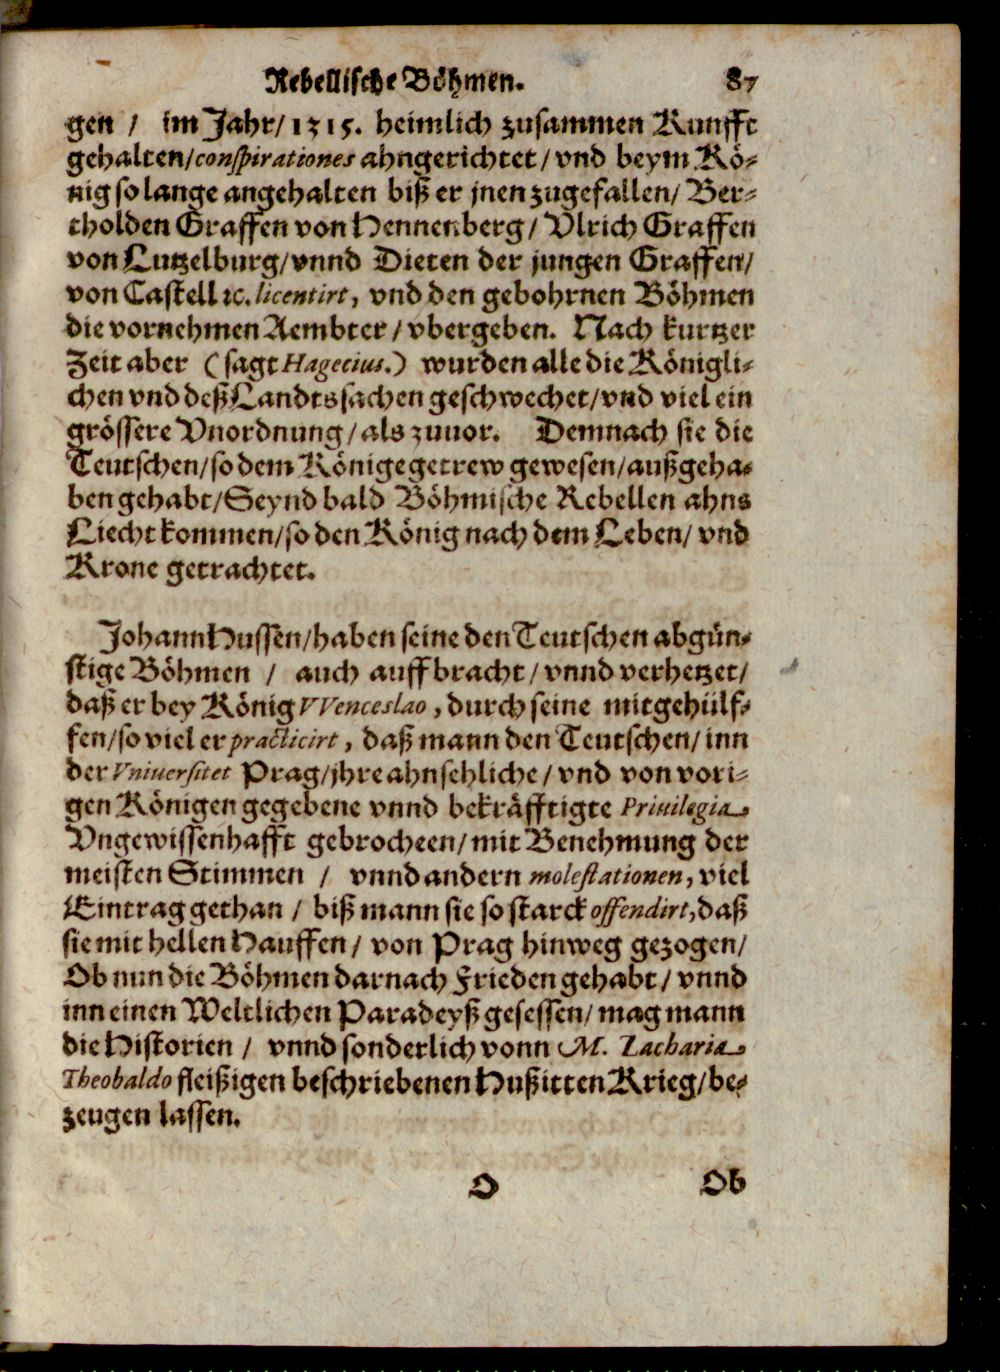 Rebellische Böhmen. 87
gen / im Jahr/ 1315. heimlich zusammen Kunfft
gehalten/ conspirationes ahngerichtet/ vnd beym Kö-
nig so lange angehalten biß er jnen zugefallen/ Ber-
tholden Graffen von Hennenberg/ Vlrich Graffen
von Lutzelburg/ vnnd Dieten der jungen Graffen/
von Castell ꝛc. licentirt, vnd den gebohrnen Böhmen
die vornehmen Aembter/ vbergeben. Nach kurtzer
Zeit aber (sagt Hagecius.) wurden alle die Königli-
chen vnd deß Landts sachen geschwechet/ vnd viel ein
grössere Vnordnung/ als zuuor. Demnach sie die
Teutschen/ so dem Könige getrew gewesen/ außgeha-
ben gehabt/ Seynd bald Böhmische Rebellen ahns
Liecht kommen/ so den König nach dem Leben/ vnd
Krone getrachtet.
Johann Hussen/ haben seine den Teutschen abgün-
stige Böhmen / auch auffbracht/ vnnd verhetzet/
daß er bey König VVenceslao, durch seine mitgehülf-
fen/ so viel er practicirt, daß mann den Teutschen/ inn
der Vniuersitet Prag/ jhre ahnsehliche/ vnd von vori-
gen Königen gegebene vnnd bekräfftigte Priuilegia
Vngewissenhafft gebrocheen/ mit Benehmung der
meisten Stimmen / vnnd andern molestationen, viel
Eintrag gethan / biß mann sie so starck offendirt, daß
sie mit hellen Hauffen/ von Prag hinweg gezogen/
Ob nun die Böhmen darnach Frieden gehabt/ vnnd
inn einen Weltlichen Paradeyß gesessen/ mag mann
die Historien / vnnd sonderlich vonn M. Zacharia
Theobaldo fleißigen beschriebenen Hußitten Krieg/ be-
zeugen lassen.
O Ob